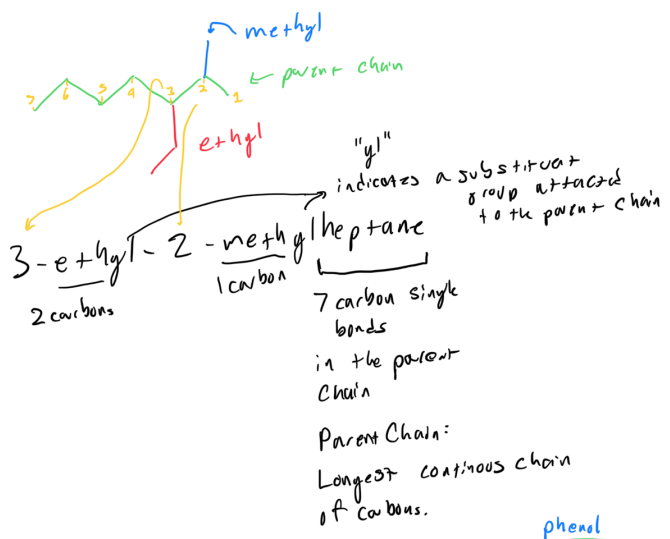 methyl
parent chain
7 6 5 4 3 2 1
ethyl
"yl"
indicates a substituent
group attacted
to the parent chain
3-ethyl-2-methylheptane
2 carbons
1 carbon
7 carbon single
bonds
in the parent
chain
Parent Chain:
Longest continous chain
of carbons.
phenol